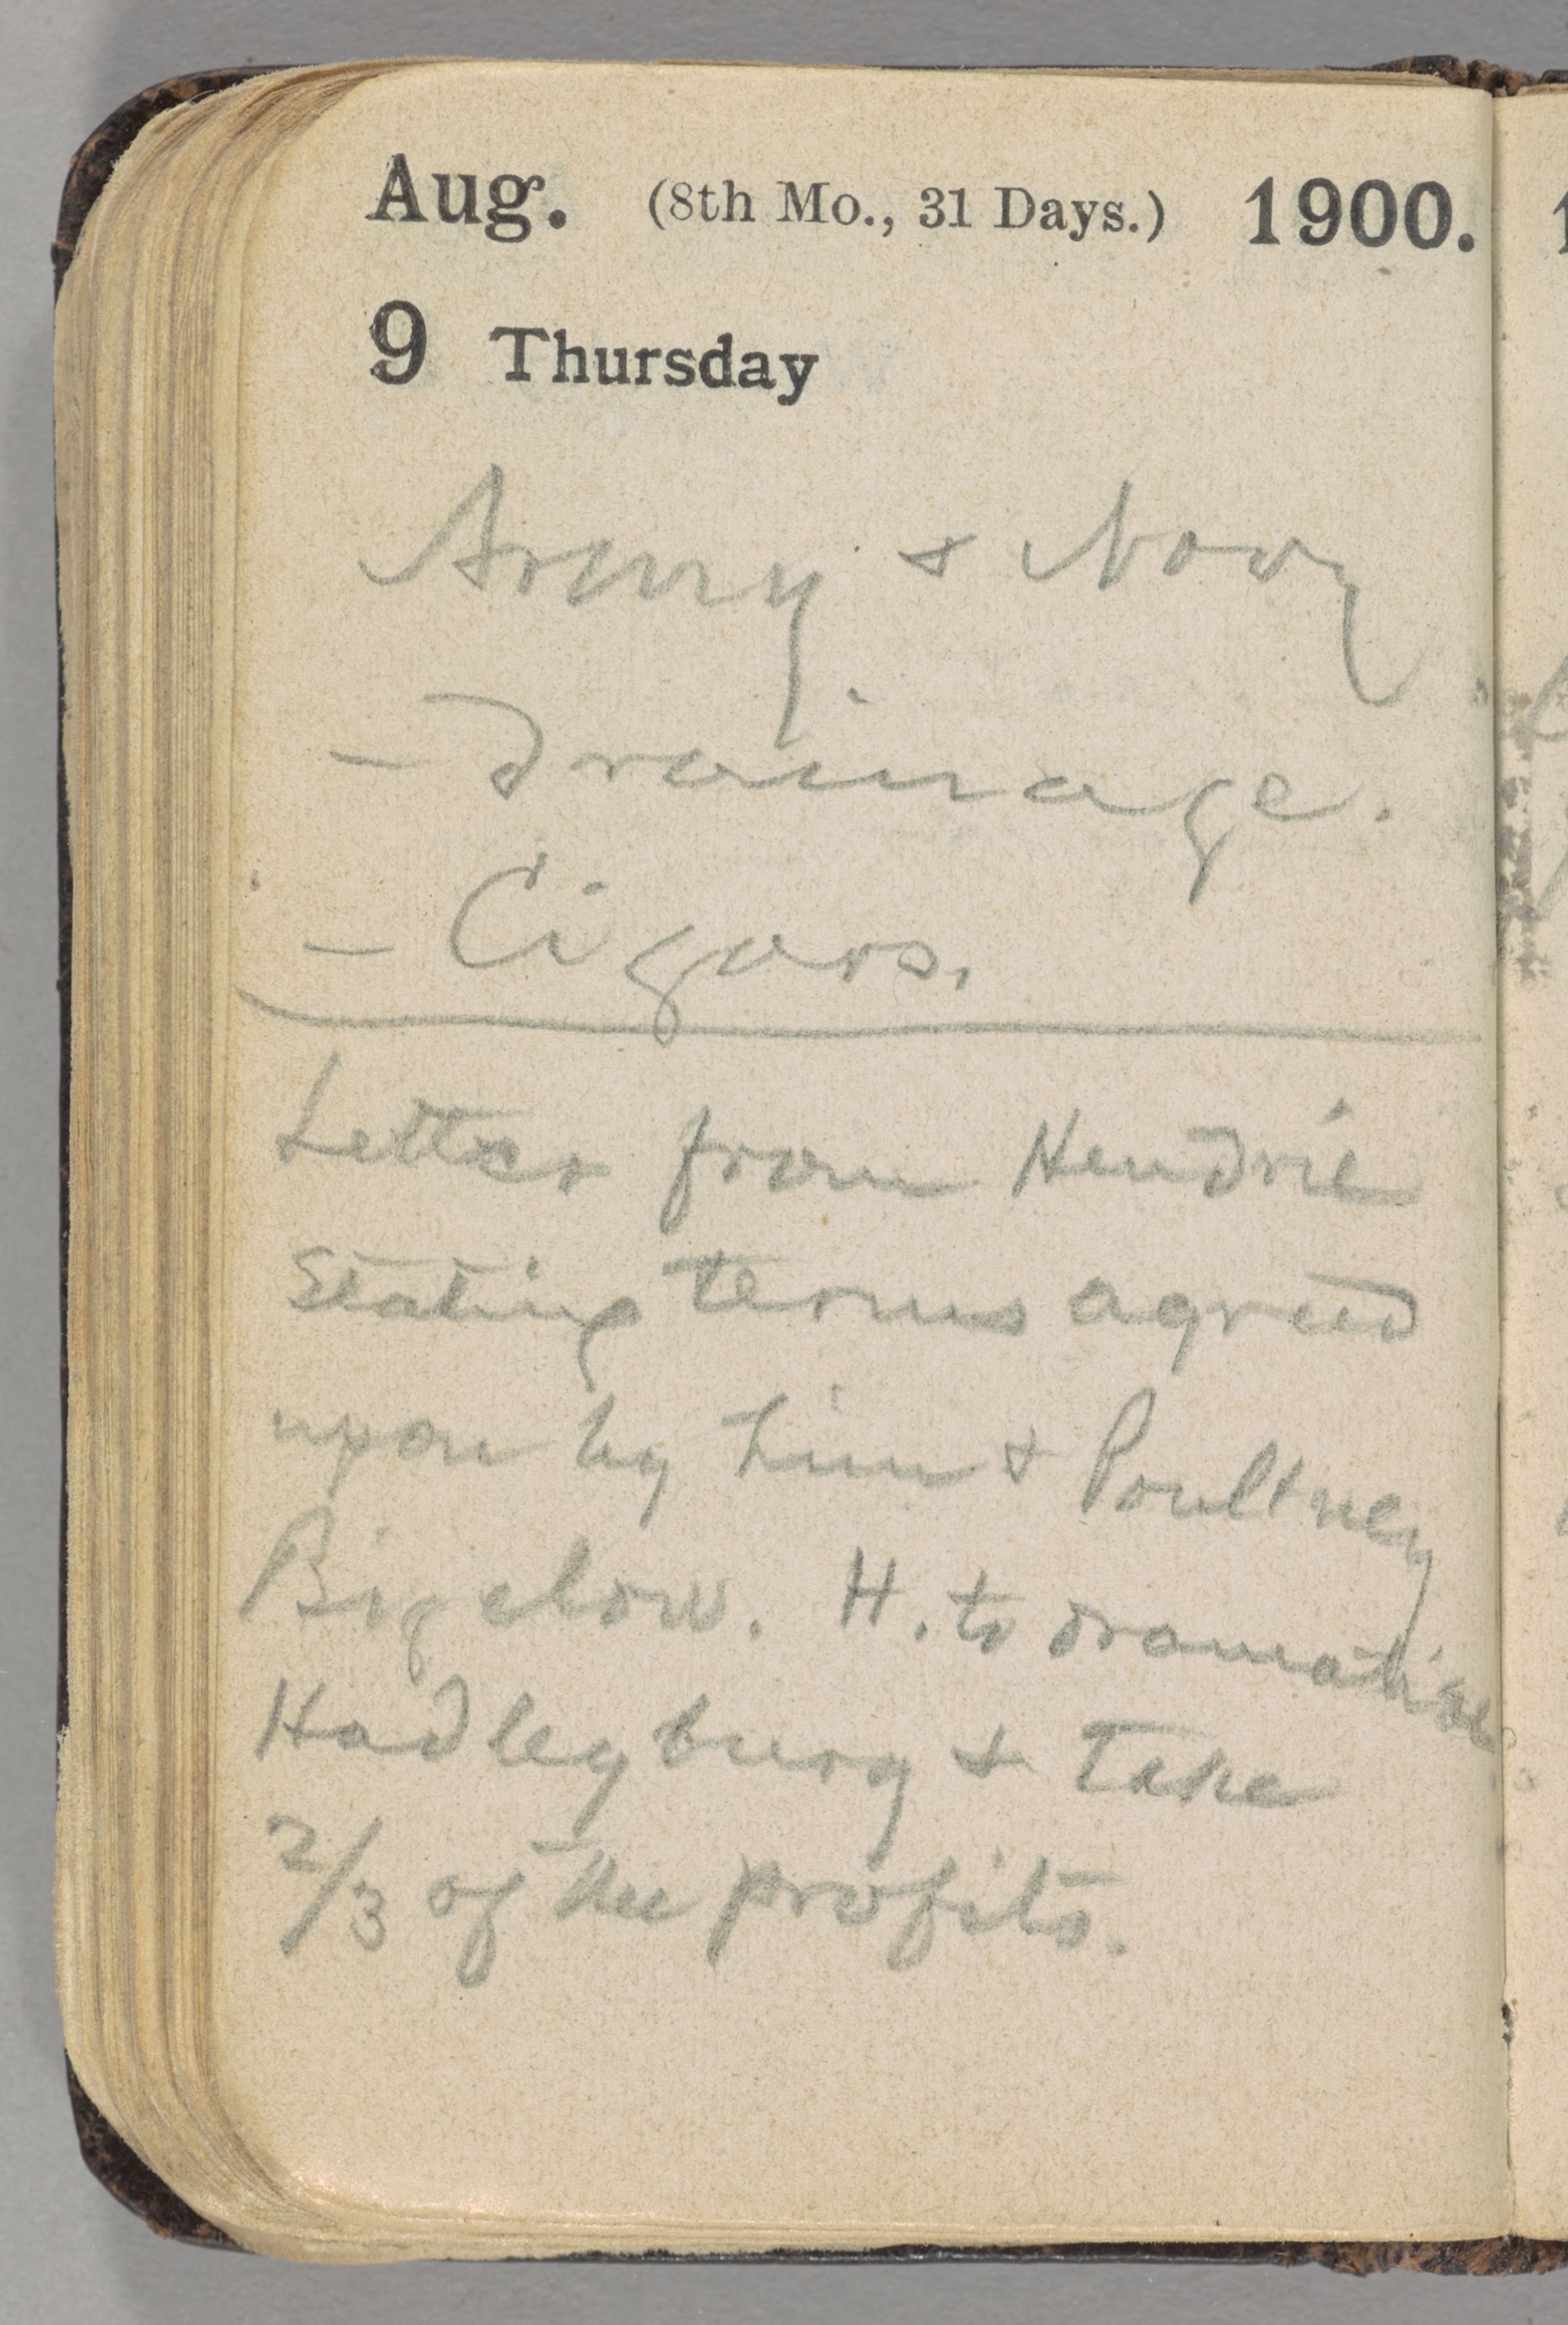 Aug. (8th Mo., 31 Days.) 1900.
9 Thursday
Army & Navy
– Drainage.
– Cigars.
Letter from Hendrie
stating terms agreed
upon by him & Poultney
Bigelow. H. to dramatize
Hadleyburg & take
2/3 of the profits.